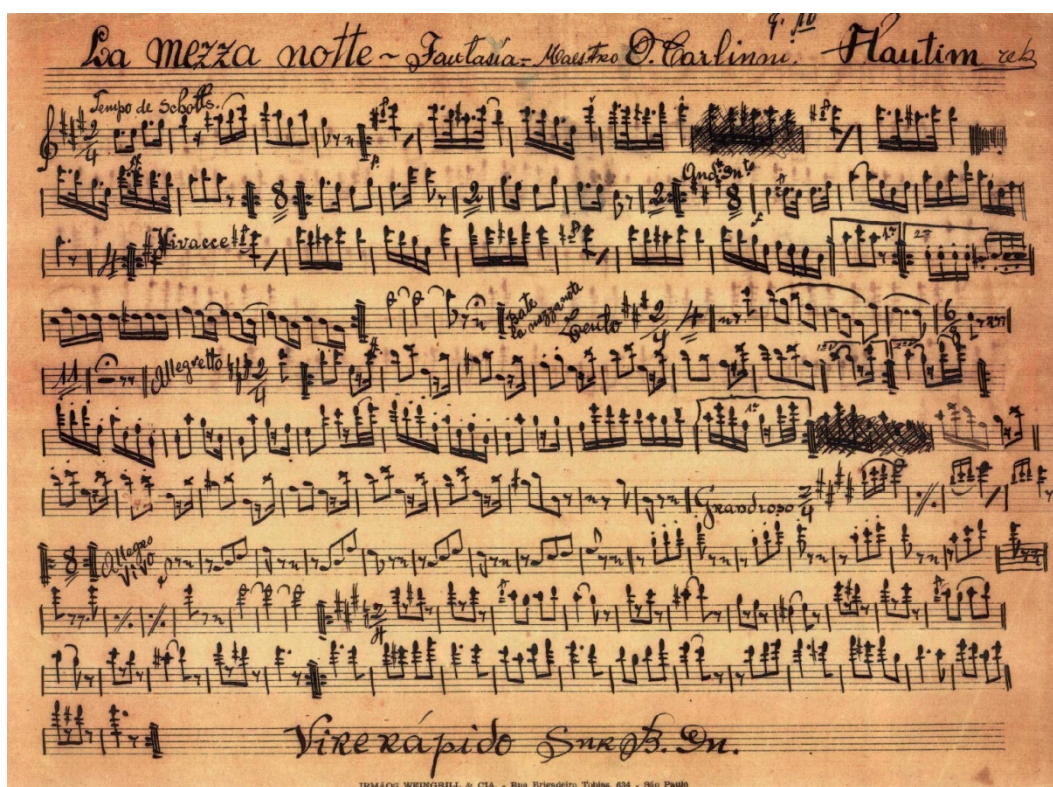 La mezza notte ~ Fantasia = Maestro O. Carlinni. Flautim reb
Tempo de Schotts.
2/4
8 2 2 8
4 Vivacce 1ª 2ª
Bate la mezza note Lento 2/4 4 6/8
11 Allegretto 2/4 1ª 2ª
1ª
Grandioso 2/4
8 Allegro Vivo
2/4
Vire rápido Snr B. Dn.
IRMÃOS WEINGRILL & CIA. - Rua Brigadeiro Tobias, 634 - São Paulo